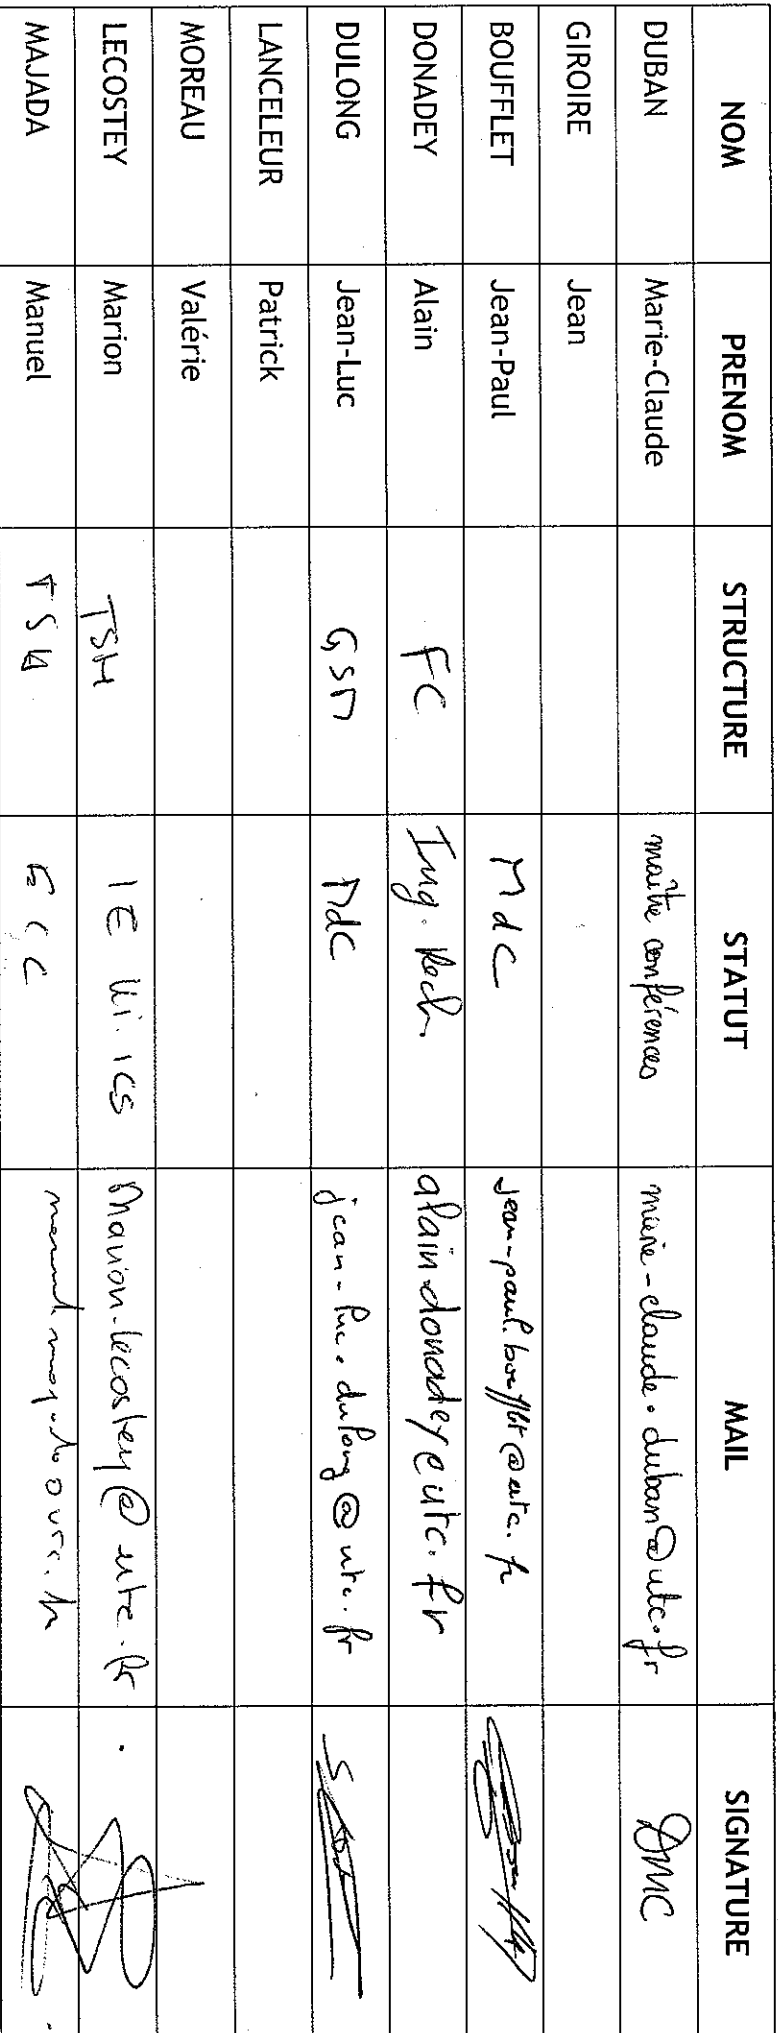 NOM PRENOM STRUCTURE STATUT MAIL SIGNATURE
DUBAN Marie-Claude maître conférences marie-claude.duban@utc.fr DMC
GIROIRE Jean
BOUFFLET Jean-Paul MdC jean-paul.boufflet@utc.fr
DONADEY Alain FC Ing. Rech alain.donadey@utc.fr
DULONG Jean-Luc GSM MdC jean-luc.dulong@utc.fr
LANCELEUR Patrick
MOREAU Valérie
LECOSTEY Marion TSH IE marion.lecostey@utc.fr
MAJADA Manuel TSH ECC